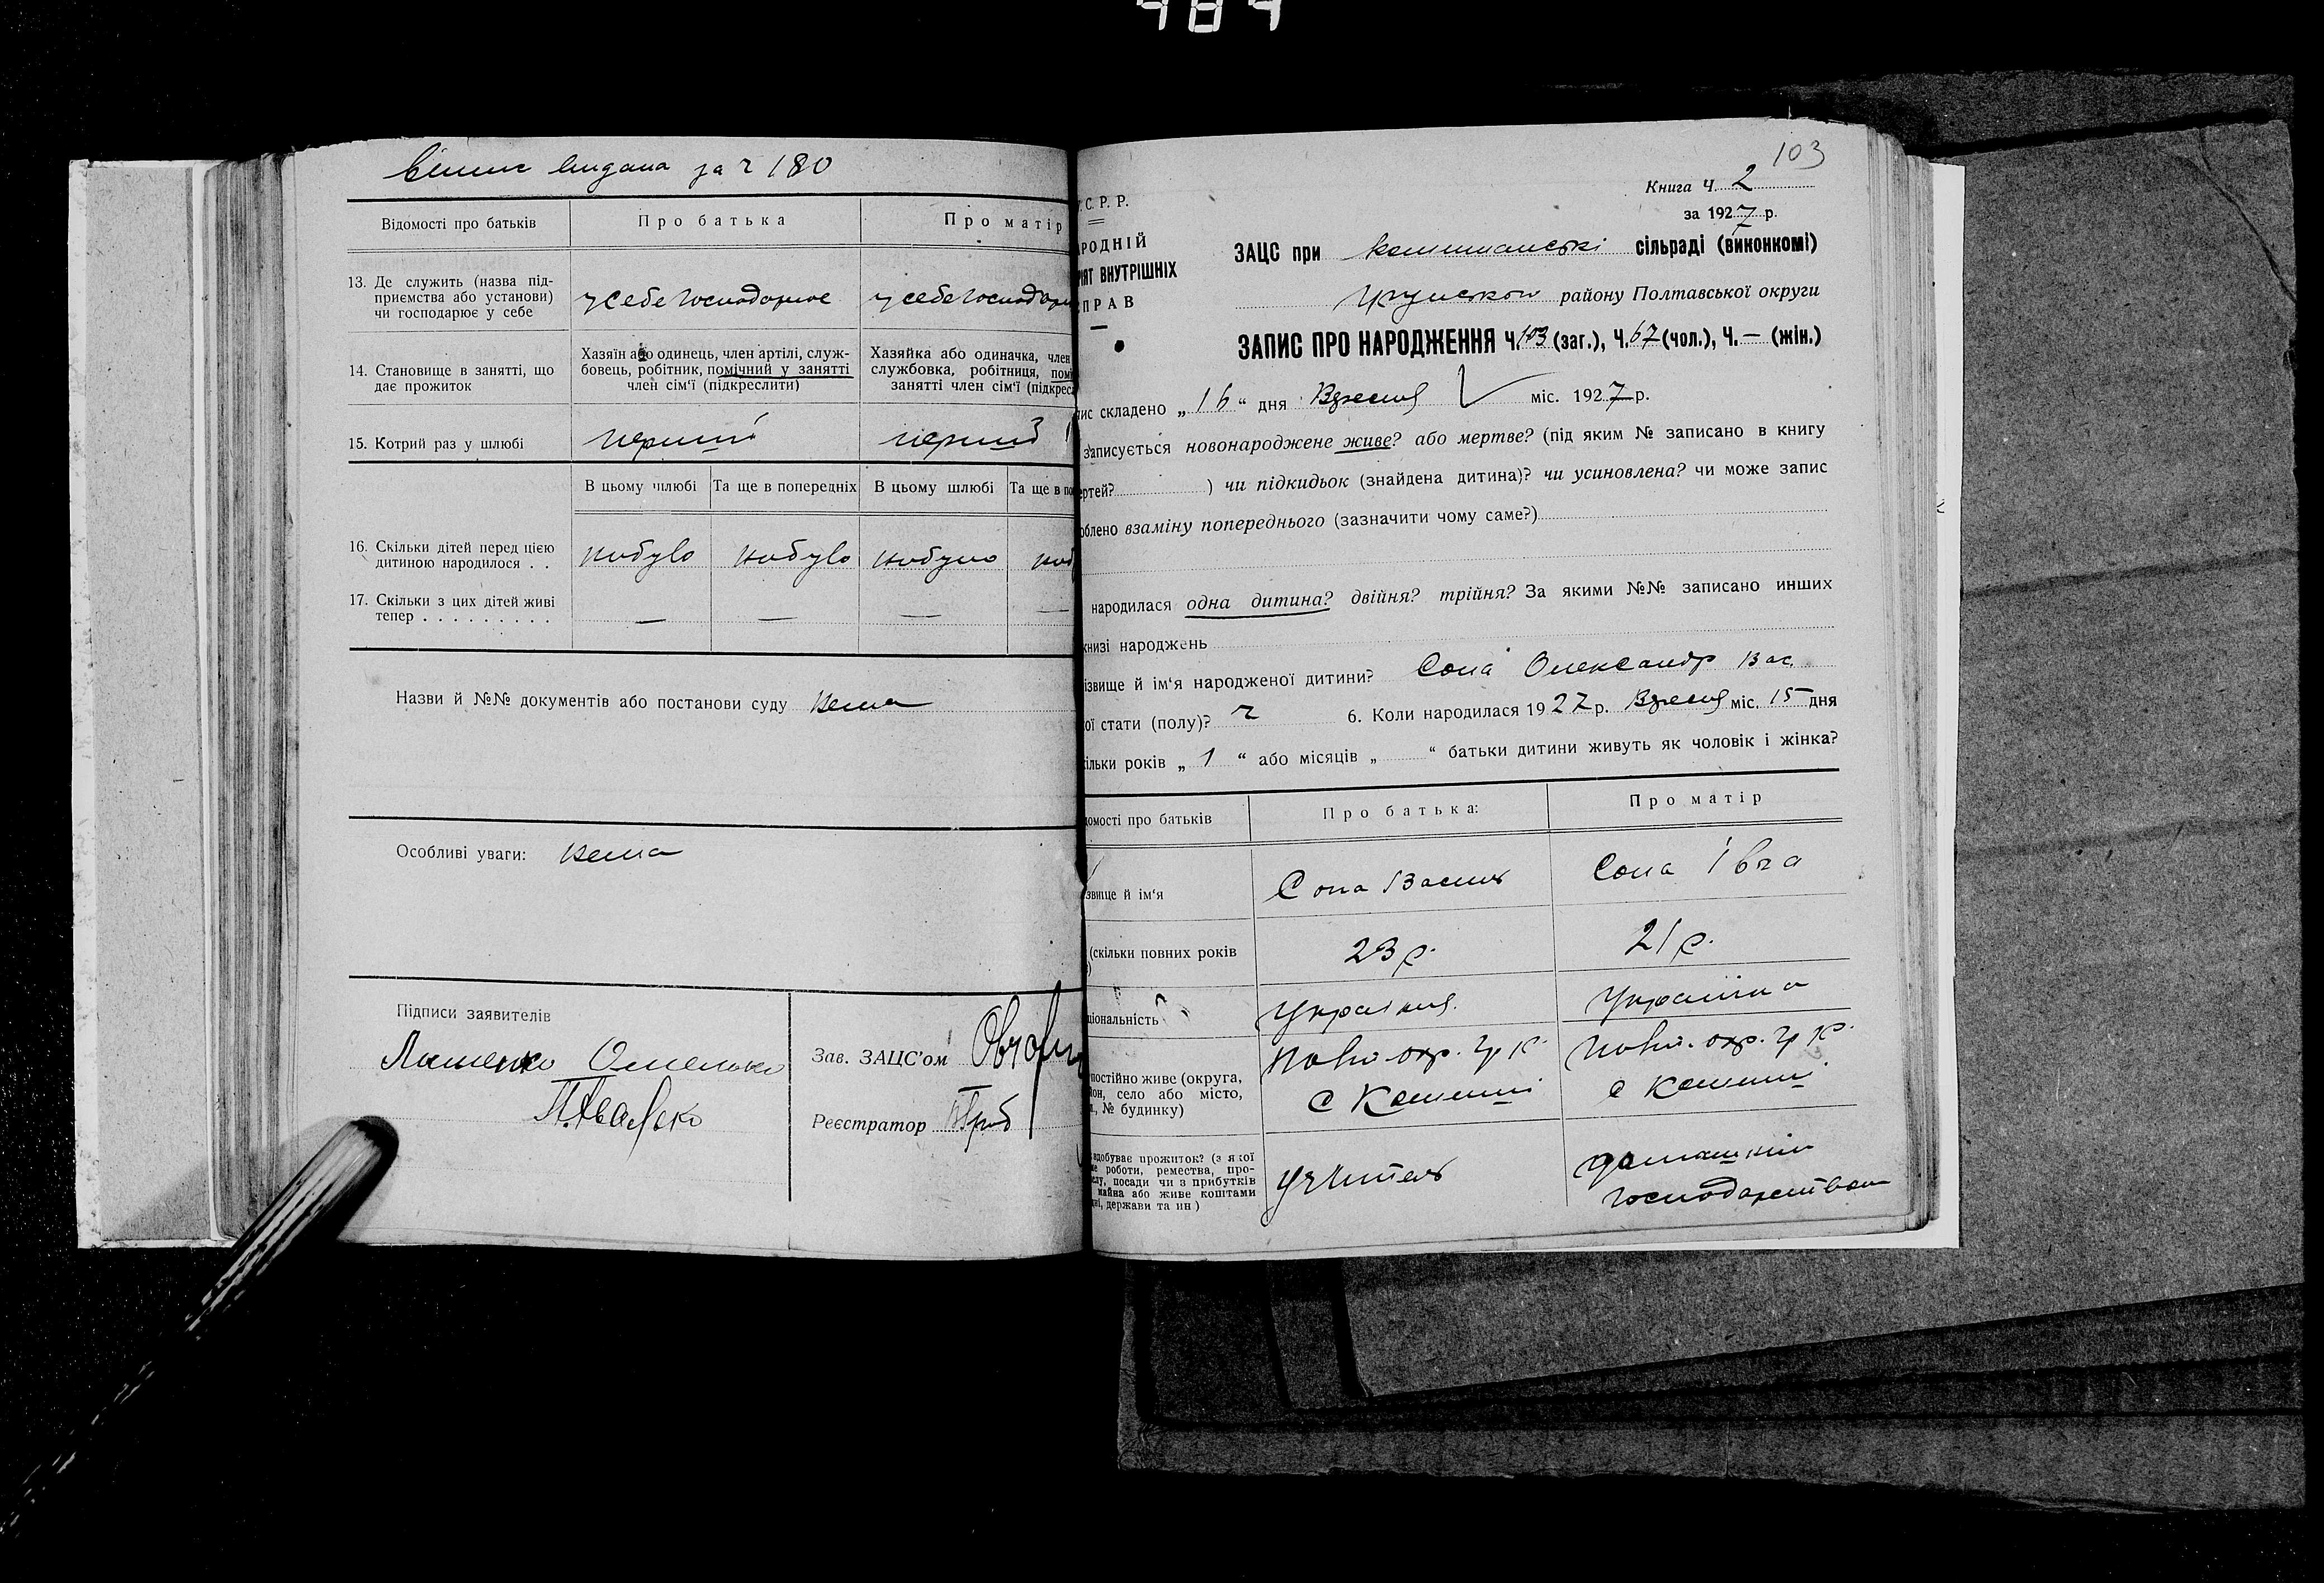 484
за ч 180
Відомості про батьків
Про батька
Про матір
13. Де служить (назва під-
приємства або установи)
чи господарює у себе
у себе господарює
у себе господарю
14. Становище в занятті, що
дає прожиток
Хазяїн або одинець, член артілі, служ-
бовець, робітник, помічний у занятті
член сім'ї (підкреслити)
Хазяйка або одиначка, член
службовка, робітниця, помі
занятті член сім'ї (підкрес
15. Котрий раз у шлюбі
перший
перший
В цьому шлюбі
Та ще в попередніх
В цьому шлюбі
Та ще в по
16. Скільки дітей перед цією
дитиною народилося . .
небуло
небуло
небуло
неб
17. Скільки з цих дітей живі
тепер . . . . . . . . .
—
—
—
—
Назви й №№ документів або постанови суду Нема
Особливі уваги: Нема
Підписи заявителів
Омелько
Зав. ЗАЦС'ом
Реєстратор
103
Книга Ч. 2
за 1927 р.
.С. Р. Р.
РОДНІЙ
РІЯТ ВНУТРІШНІХ
ПРАВ
ЗАЦС при сільраді (виконкомі)
району Полтавської округи
ЗАПИС ПРО НАРОДЖЕННЯ Ч. 103 (заг.), Ч. 67 (чол.), Ч. — (жін.)
ис складено „16“ дня Вересня міс. 1927 р.
записується новонароджене живе? або мертве? (під яким № записано в книгу
ертей? ) чи підкидьок (знайдена дитина)? чи усиновлена? чи може запис
облено взаміну попереднього (зазначити чому саме?)
народилася одна дитина? двійня? трійня? За якими №№ записано инших
книзі народжень
ізвище й ім'я народженої дитини? Сопа Олександр Вас.
ої стати (полу)? ч 6. Коли народилася 1927 р. Вересня міс. 15 дня
ільки років „1“ або місяців „ “ батьки дитини живуть як чоловік і жінка?
домості про батьків
Про батька:
Про матір
звище й ім'я
Сопа Василь
Сопа Івга
(скільки повних років
)
23 р.
21 р.
ціональність
Українець
Українка
постійно живе (округа,
йон, село або місто,
л., № будинку)
с
с
здобуває прожиток? (з якої
ме роботи, ремества, про-
слу, посади чи з прибутків
майна або живе коштами
дні, держави та ин)
учитель
домашнім
господарством